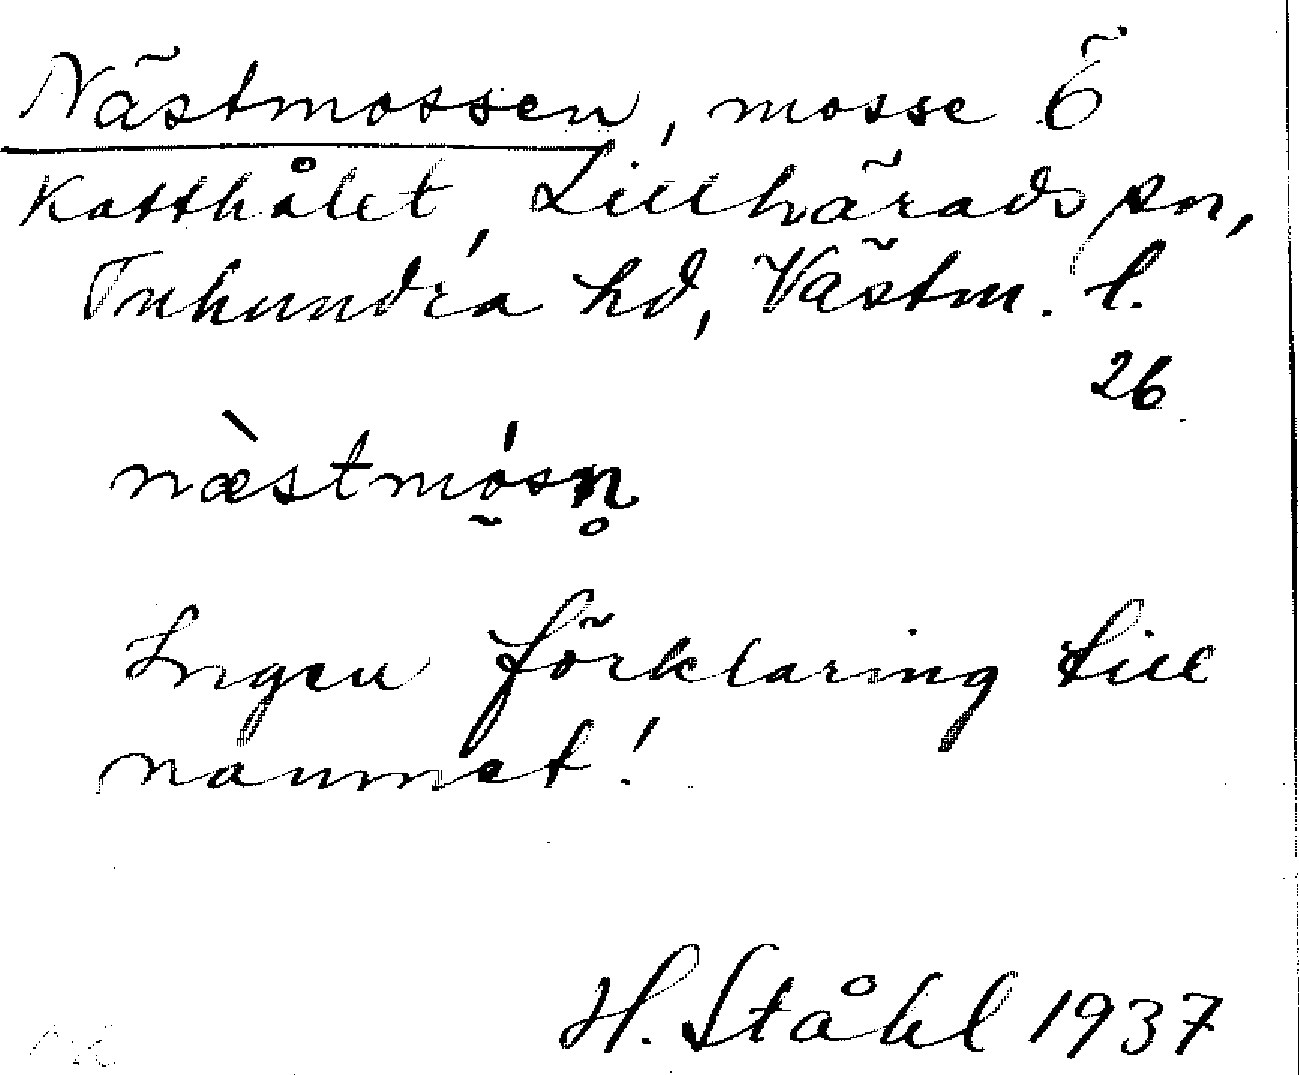 Nästmossen, mosse Ö
Katthålet, Lillhärads sn,
Tuhundra hd, Västm. l.
26
næ̀stmó̰sn̥
Ingen förklaring till
namnet!
H. Ståhl 1937